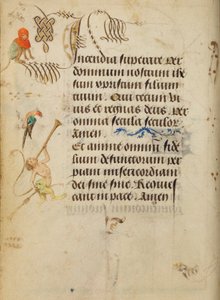 Incendia superare Per
dominum nostrum ihe
sum xpristum filium
tuum. Qui tecum vi
uis et regnas deus. Per
omnia secula seculor
Amen.
Et anime omnium fide
lium defunctorum per
piam misericordiam
dei sine fine. Requies
cant in pace. Amen